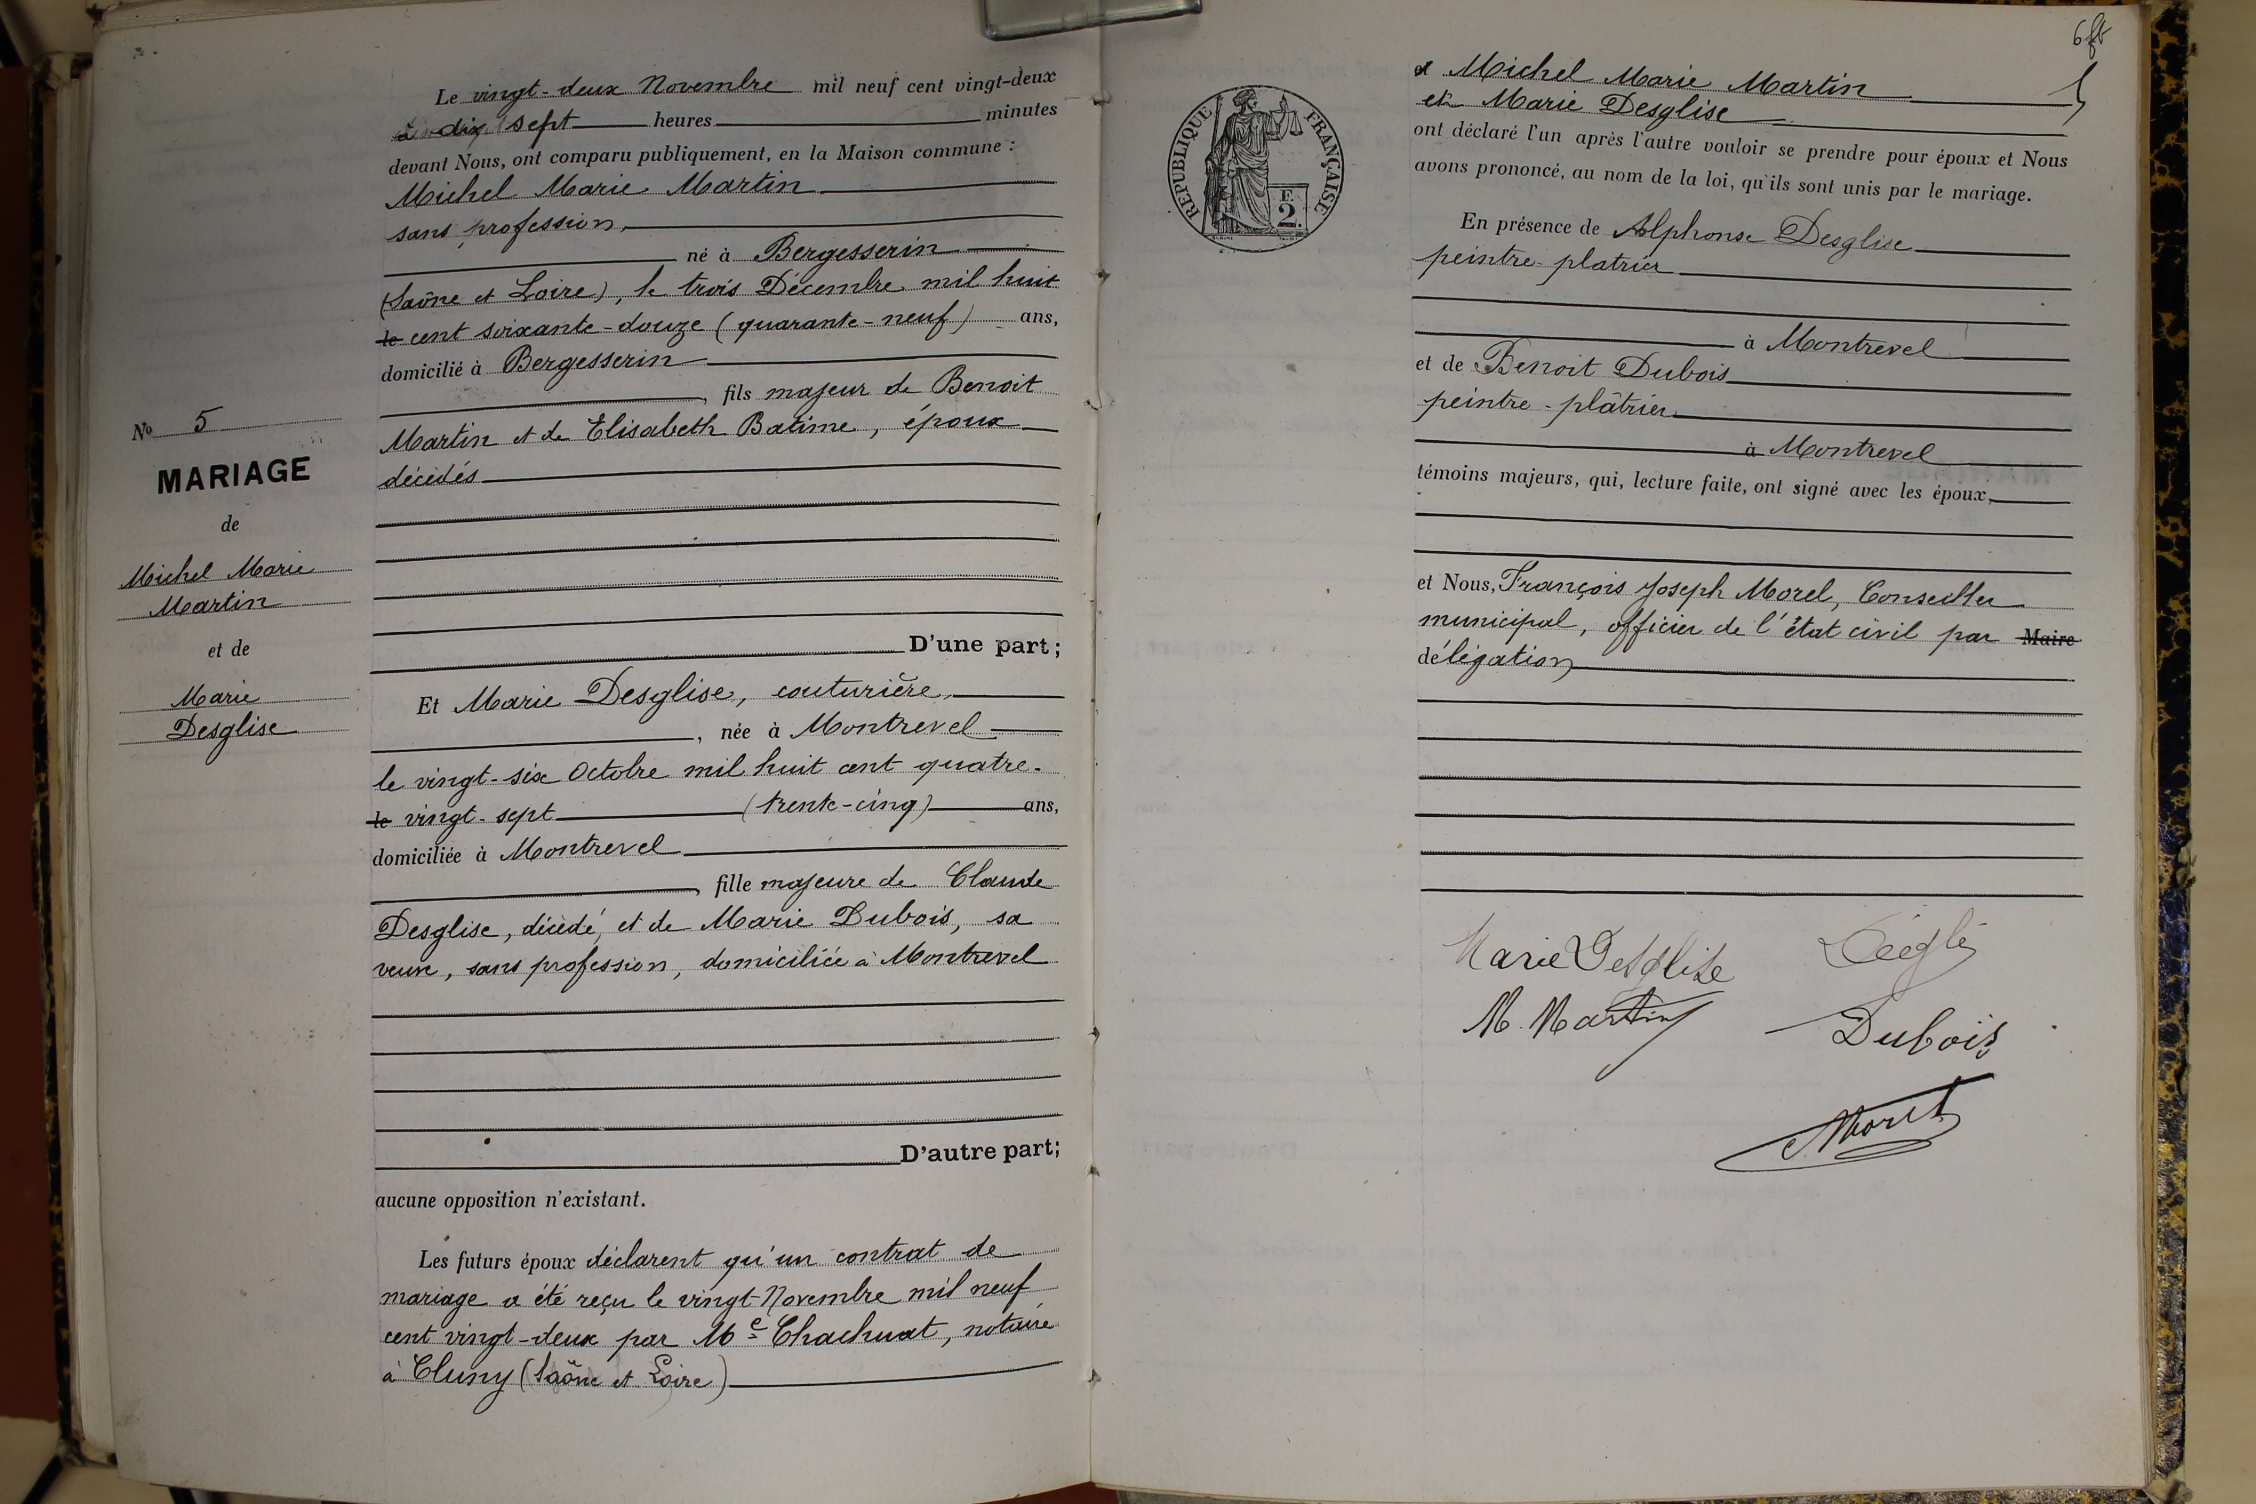 Le vingt-deux Novembre mil neuf cent vingt-deux
à dix sept heures minutes
devant Nous, ont comparu publiquement, en la Maison commune :
Michel Marie Martin
sans profession,
né à Bergesserin
(Saône et Loire), le trois Décembre mil huit
le cent soixante-douze (quarante-neuf) ans,
domicilié à Bergesserin
, fils majeur de Benoit
Martin et de Elisabeth Batime, époux
décédés
D'une part;
N° 5
MARIAGE
de
Michel Marie
Martin
et de
Marie
Desglise
Et Marie Desglise, couturière,
, née à Montrevel
le vingt-six Octobre mil huit cent quatre-
le vingt-sept (trente-cinq) ans,
domiciliée à Montrevel
, fille majeure de Claude
Desglise, décédé, et de Marie Dubois, sa
veuve, sans profession, domiciliée à Montrevel
D'autre part;
aucune opposition n'existant.
Les futurs époux déclarent qu'un contrat de
mariage a été reçu le vingt Novembre mil neuf
cent vingt-deux par Me Chachuat, notaire
à Cluny (Saône et Loire)
RÉPUBLIQUE FRANÇAISE
F.
2.
et Michel Marie Martin
et Marie Desglise
ont déclaré l'un après l'autre vouloir se prendre pour époux et Nous
avons prononcé, au nom de la loi, qu'ils sont unis par le mariage.
En présence de Alphonse Desglise
peintre-platrier
à Montrevel
et de Benoit Dubois
peintre-plâtrier
à Montrevel
témoins majeurs, qui, lecture faite, ont signé avec les époux,
et Nous, François Joseph Morel, Conseiller
municipal, officier de l'état civil par Maire
délégation
Marie Desglise
M. Martin
Dubois
Morel